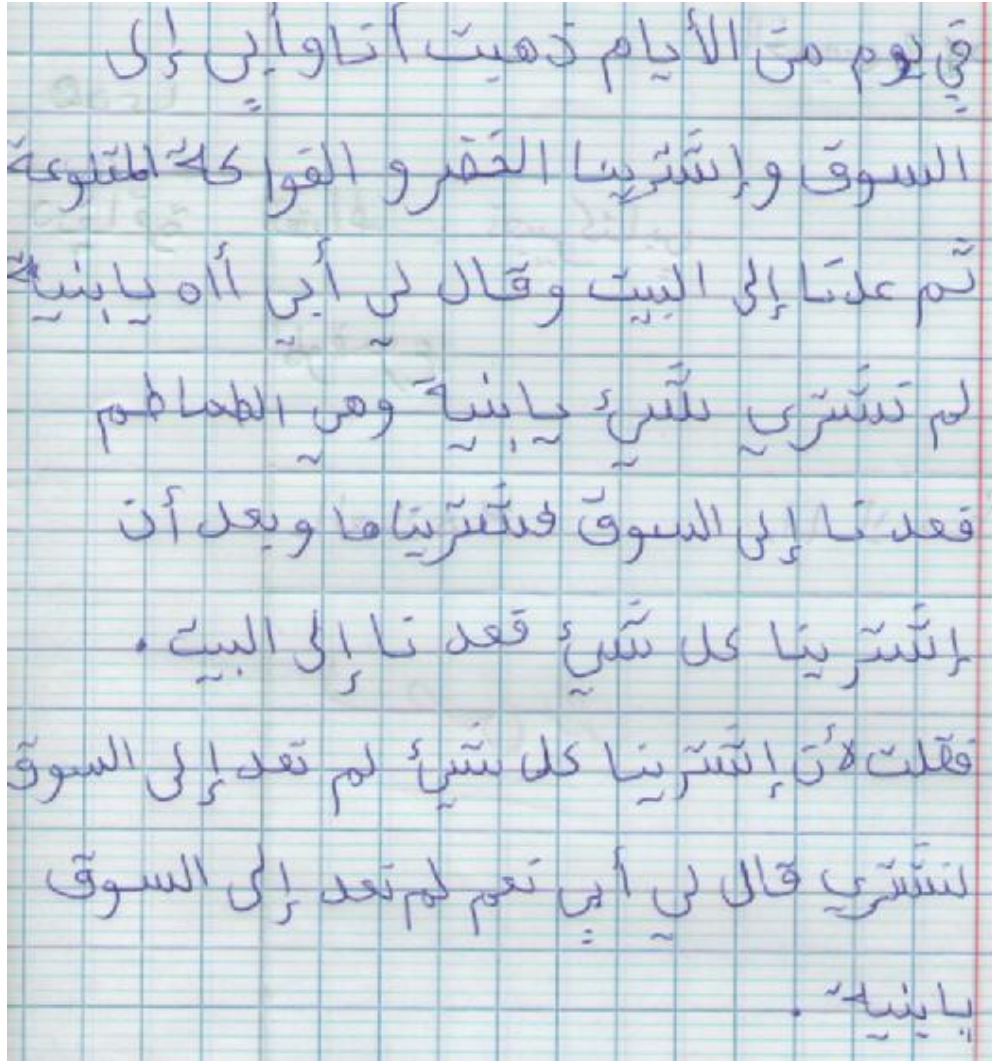 في يوم من الأيام ذهبت أنا وأبي إلى
السوق وإشترينا الخضر و الفواكة المتنوعة
ثم عدنا إلى البيت وقال لي أبي أاه يابنية
لم نشتري شيئ يابنية وهي الطماطم
فعدنا إلى السوق فشتريناها وبعد أن
إشترينا كل شيئ فعدنا إلى البيت .
فقلت لأن إشترينا كل شيئ لم نعد إلى السوق
لنشتري قال لي أبي نعم لم نعد إلى السوق
يابنية .